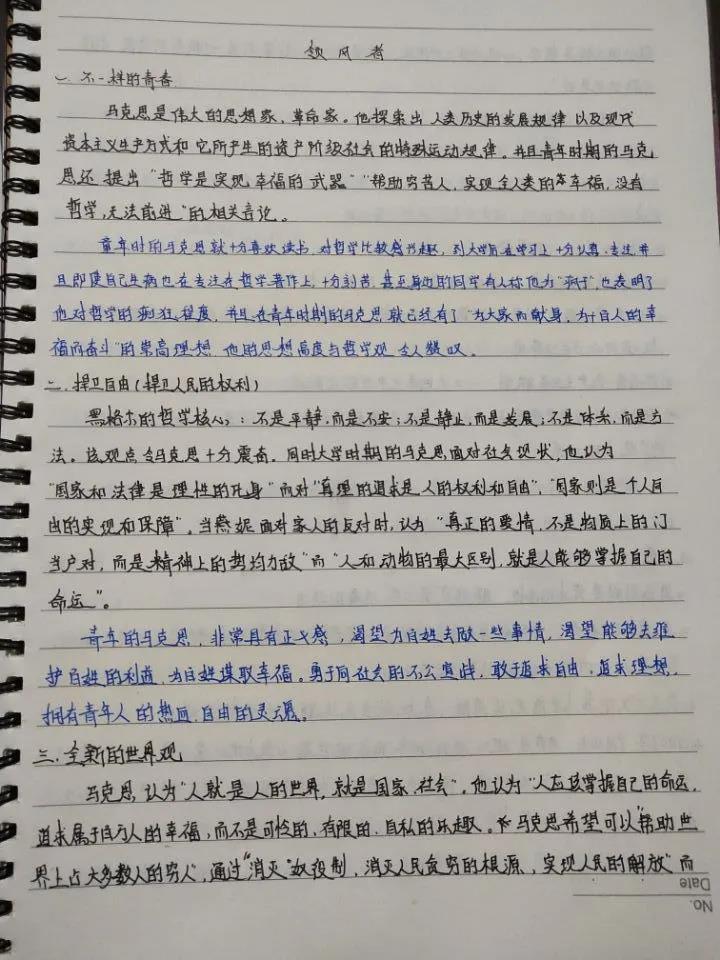 领风者
一、不一样的青春
马克思是伟大的思想家、革命家。他探索出人类历史的发展规律以及现代
资本主义生产方式和它所产生的资产阶级社会的特殊运动规律。并且青年时期的马克
思还提出"哲学是实现幸福的武器""帮助穷苦人,实现全人类的幸福,没有
哲学,无法前进"的相关言论。
童年时的马克思就十分喜欢读书,对哲学比较感兴趣,到大学后在学习上十分认真、专注,并
且即使自己生病也在专注在哲学著作上,十分刻苦,甚至身边的同学有人称他为"疯子",也表明了
他对哲学的痴狂程度,并且在青年时期的马克思就已经有了"为大家而献身,为千百人的幸
福而奋斗"的崇高理想,他的思想高度与哲学观令人赞叹。
二、捍卫自由(捍卫人民的权利)
黑格尔的哲学核心:不是平静,而是不安;不是静止,而是发展;不是体系,而是方
法。该观点令马克思十分震奋。同时大学时期的马克思面对社会现状,他认为
"国家和法律是理性的化身"而对"真理的追求是人的权利和自由","国家则是个人自
由的实现和保障"。当燕妮面对家人的反对时,认为"真正的爱情,不是物质上的门
当户对,而是精神上的势均力敌"而"人和动物的最大区别,就是人能够掌握自己的
命运"。
青年的马克思,非常具有正义感,渴望为百姓去做一些事情,渴望能够去维
护百姓的利益,为百姓谋取幸福。勇于向社会的不公宣战,敢于追求自由,追求理想,
拥有青年人的热血,自由的灵魂。
三、全新的世界观
马克思认为"人就是人的世界,就是国家,社会"。他认为"人应该掌握自己的命运,
追求属于千万人的幸福,而不是可怜的、有限的、自私的乐趣。马克思希望可以"帮助世
界上占大多数人的穷人",通过"消灭"奴役制,消灭人民贫穷的根源,实现人民的解放"而
No.
Date